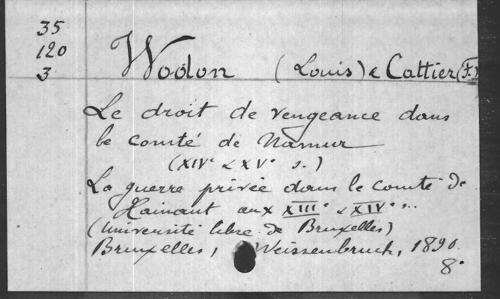 35
120
3
Wodon (Louis) & Cattier (F.)
Le droit de vengeance dans
le comté de Namur
(XIVe & XVe s.)
La guerre privée dans le comté de
Hainaut aux XIIIe & XIVe s.
(Université libre de Bruxelles)
Bruxelles, Weissenbruch, 1890.
8°